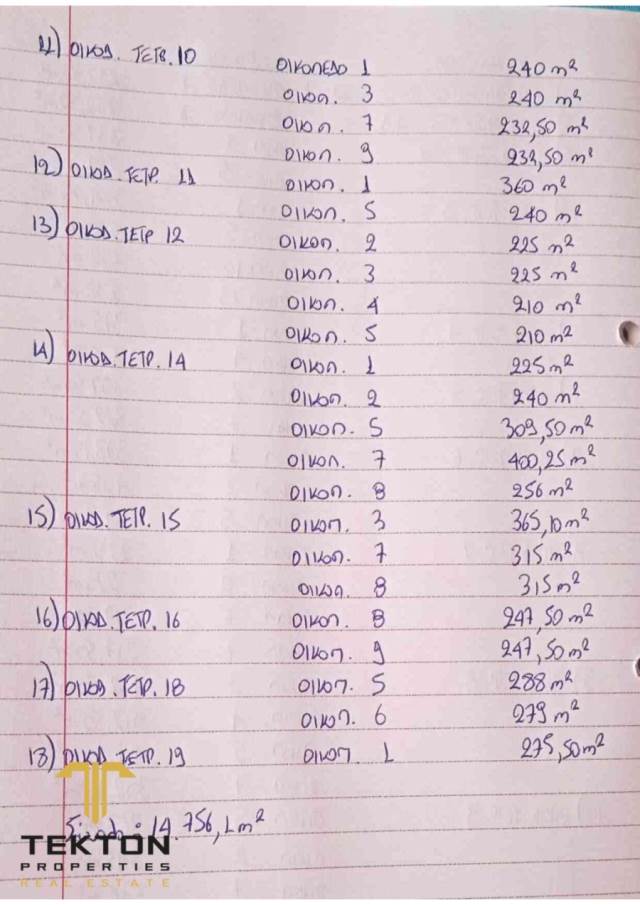 11) ΟΙΚΟΔ. ΤΕΤΡ. 10 ΟΙΚΟΠΕΔΟ 1 240 m²
ΟΙΚΟΠ. 3 240 m²
ΟΙΚΟΠ. 7 232,50 m²
ΟΙΚΟΠ. 9 232,50 m²
12) ΟΙΚΟΔ. ΤΕΤΡ. 11 ΟΙΚΟΠ. 1 360 m²
ΟΙΚΟΠ. 5 240 m²
13) ΟΙΚΟΔ. ΤΕΤΡ 12 ΟΙΚΟΠ. 2 225 m²
ΟΙΚΟΠ. 3 225 m²
ΟΙΚΟΠ. 4 210 m²
ΟΙΚΟΠ. 5 210 m²
14) ΟΙΚΟΔ. ΤΕΤΡ. 14 ΟΙΚΟΠ. 1 225 m²
ΟΙΚΟΠ. 2 240 m²
ΟΙΚΟΠ. 5 309,50 m²
ΟΙΚΟΠ. 7 400,25 m²
ΟΙΚΟΠ. 8 256 m²
15) ΟΙΚΟΔ. ΤΕΤΡ. 15 ΟΙΚΟΠ. 3 365,10 m²
ΟΙΚΟΠ. 7 315 m²
ΟΙΚΟΠ. 8 315 m²
16) ΟΙΚΟΔ. ΤΕΤΡ. 16 ΟΙΚΟΠ. 8 247,50 m²
ΟΙΚΟΠ. 9 247,50 m²
17) ΟΙΚΟΔ. ΤΕΤΡ. 18 ΟΙΚΟΠ. 5 288 m²
ΟΙΚΟΠ. 6 279 m²
18) ΟΙΚΟΔ. ΤΕΤΡ. 19 ΟΙΚΟΠ. 1 275,50 m²
: 14.756,1 m²
TEKTON
PROPERTIES
REAL ESTATE